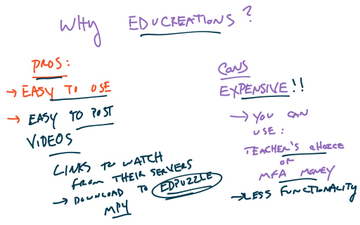 WHY EDUCREATIONS?
PROS:
→ EASY TO USE
→ EASY TO POST
VIDEOS
LINKS TO WATCH
FROM THEIR SERVERS
→ DOWNLOAD TO EDPUZZLE
MP4
CONS
EXPENSIVE!!
→ YOU CAN
USE:
TEACHER'S CHOICE
or
MFA MONEY
→ LESS FUNCTIONALITY